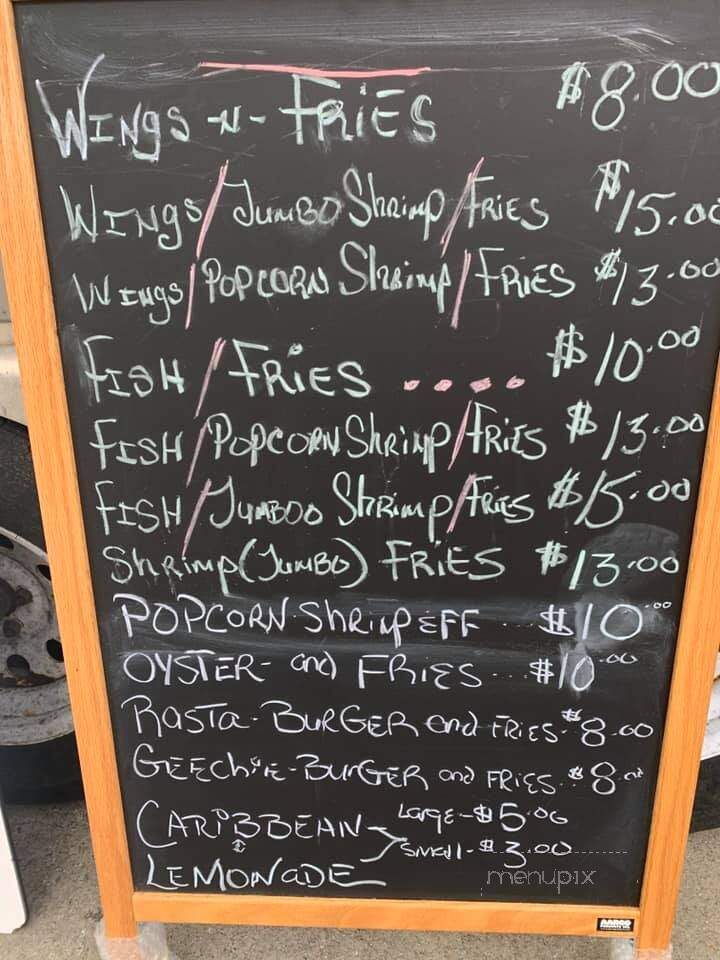 Wings -N- Fries $8.00
Wings/Jumbo Shrimp/Fries $15.00
Wings/Popcorn Shrimp/Fries $13.00
Fish/Fries .... $10.00
Fish/Popcorn Shrimp/Fries $13.00
Fish/Jumboo Shrimp/Fries $15.00
Shrimp(Jumbo) Fries $13.00
Popcorn Shrimp EFF ... $10.00
Oyster- and Fries... $10.00
Rasta-Burger and Fries-$8.00
Geechie-Burger and Fries..$8.00
Caribbean Large-$5.00
Small-$3.00
Lemonade
menupix
AARCO